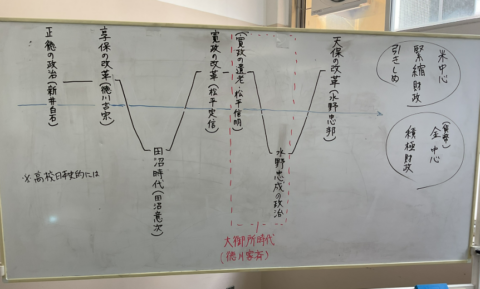 正徳の政治(新井白石)
享保の改革(徳川吉宗)
田沼時代(田沼意次)
寛政の改革(松平定信)
(寛政の遺老・松平信明)
水野忠成の政治
天保の改革(水野忠邦)
米中心
緊縮財政
引きしめ
金中心
積極財政
※高校日本史的には
大御所時代
(徳川家斉)